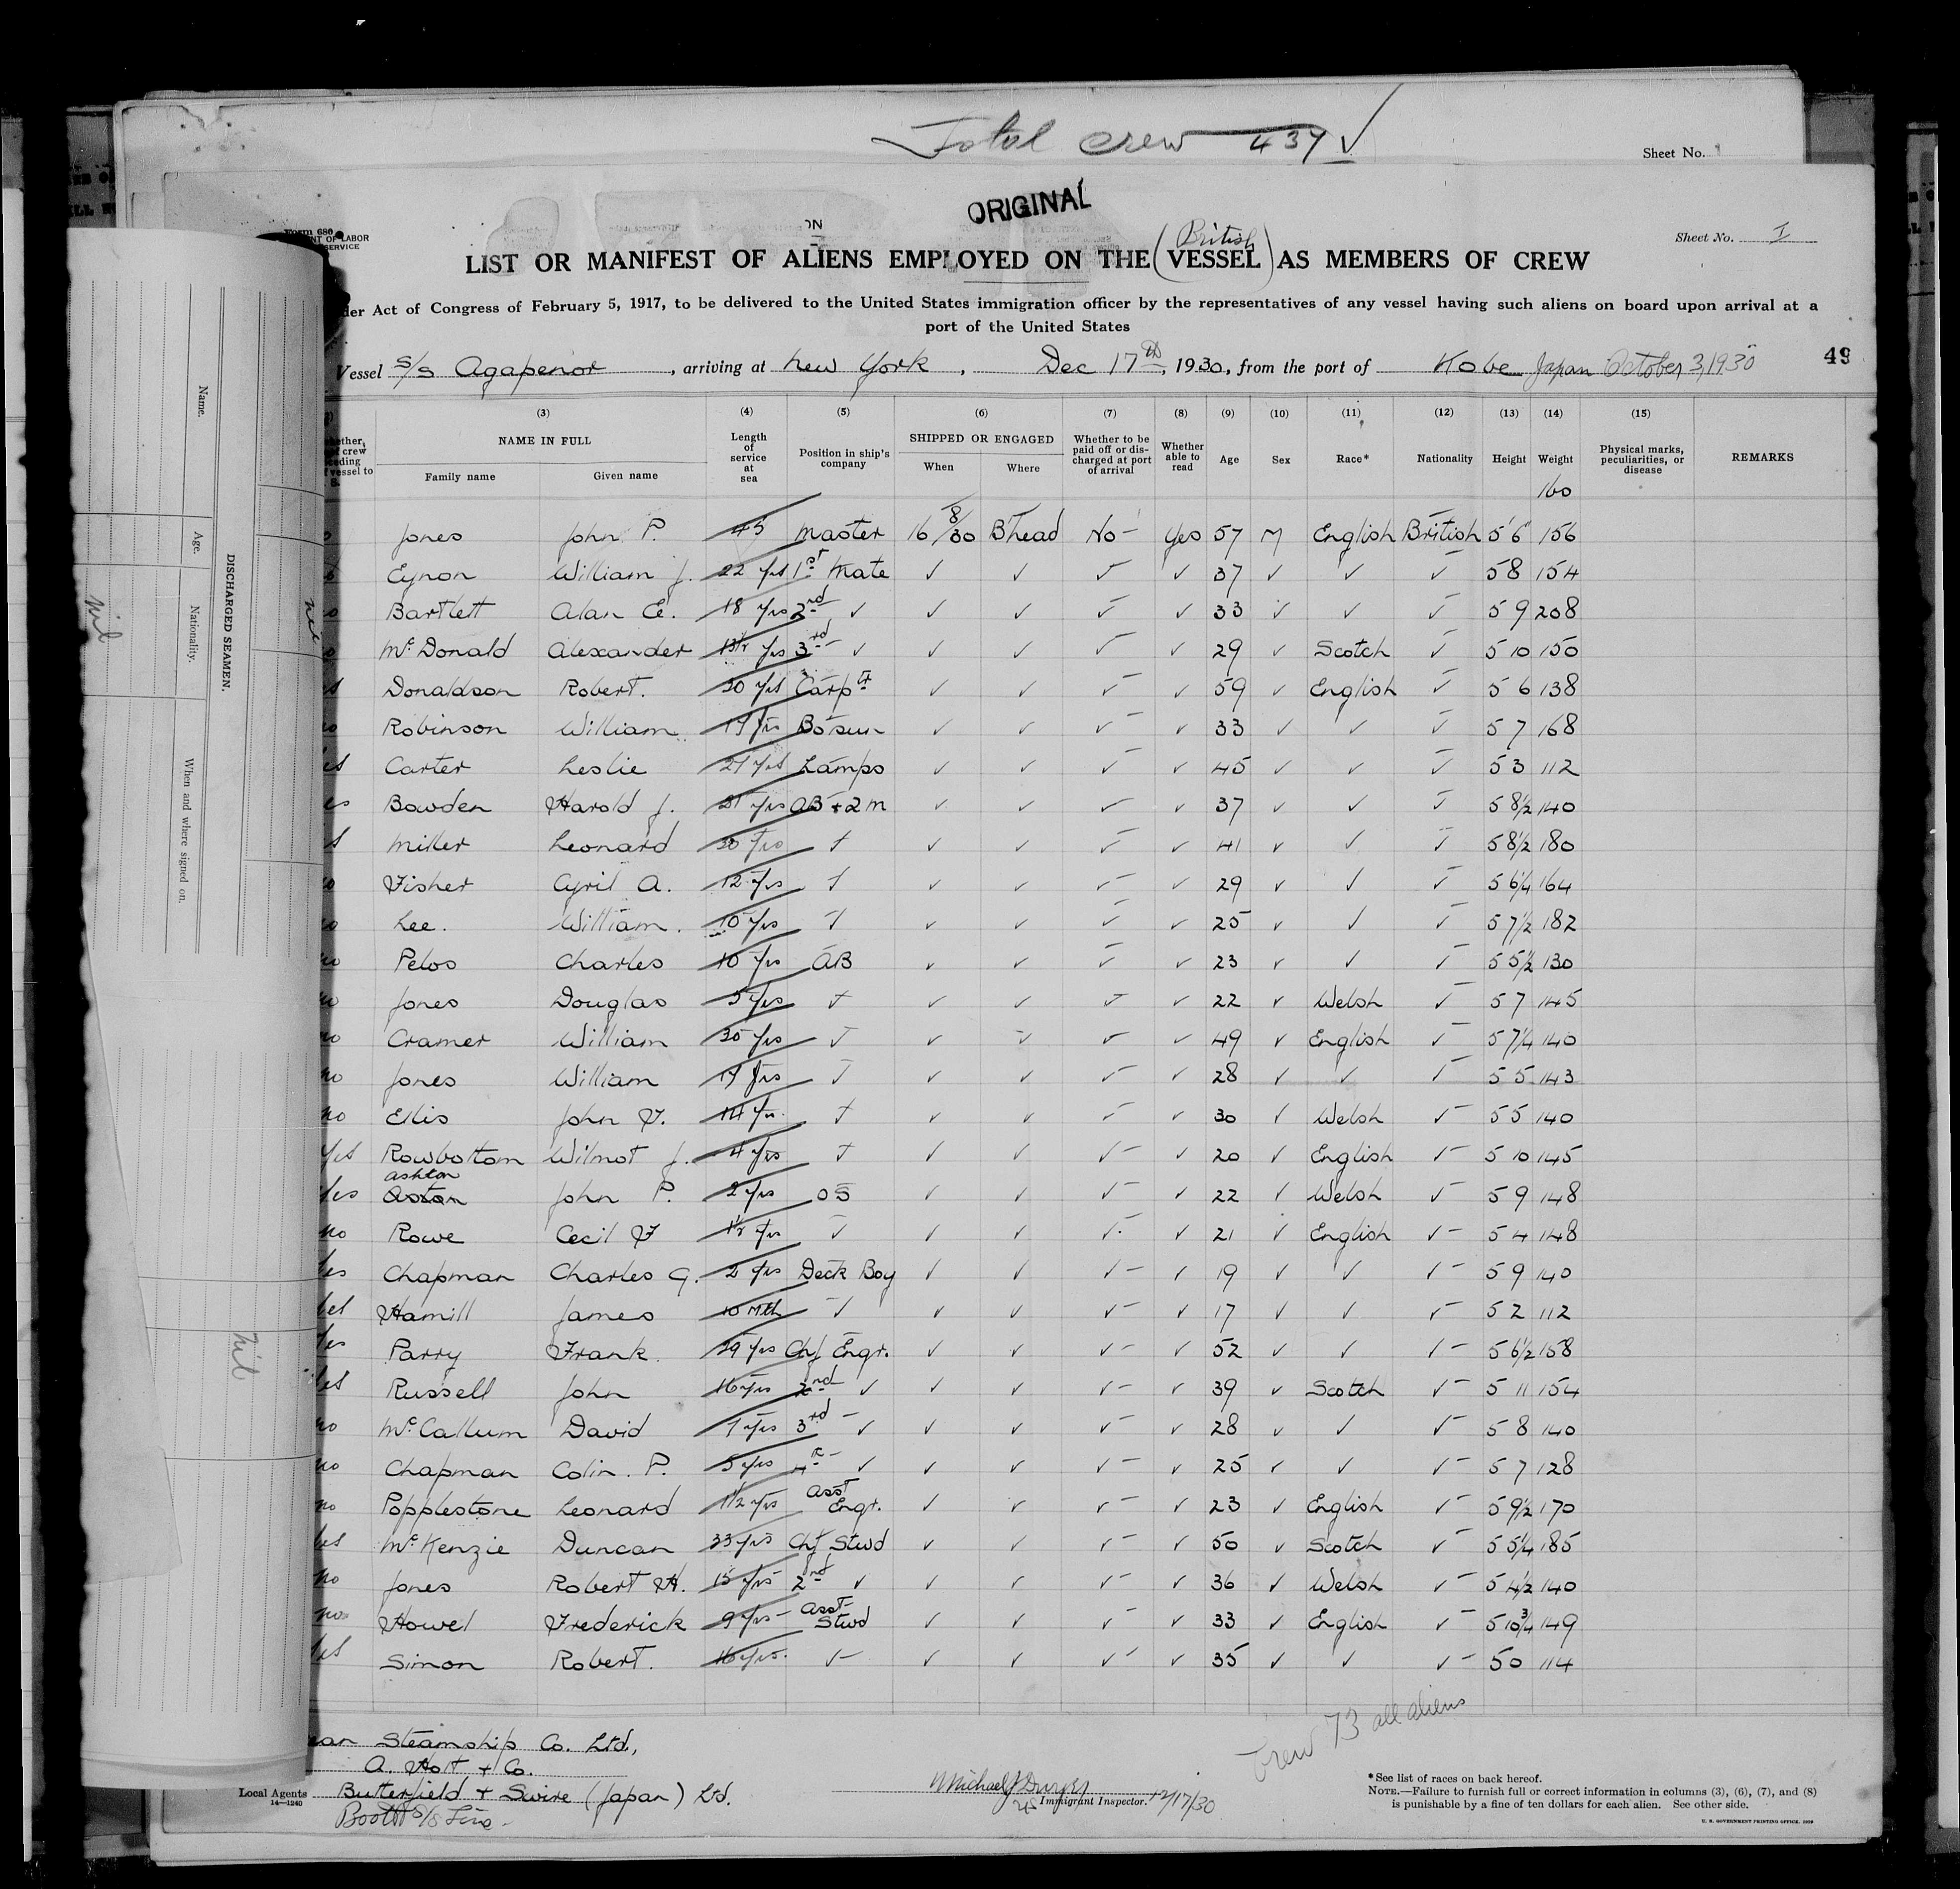 Total crew 437 ✓
Sheet No. 1
ORIGINAL
Form 680
LABOR
SERVICE
Sheet No. I
British
LIST OR MANIFEST OF ALIENS EMPLOYED ON THE (VESSEL) AS MEMBERS OF CREW
der Act of Congress of February 5, 1917, to be delivered to the United States immigration officer by the representatives of any vessel having such aliens on board upon arrival at a
port of the United States
Vessel S/S Agapenor, arriving at New York, Dec 17th, 1930, from the port of Kobe Japan October 3, 1930
49
(3) (4) (5) (6) (7) (8) (9) (10) (11) (12) (13) (14) (15)
NAME IN FULL
Family name Given name
Length of service at sea
Position in ship's company
SHIPPED OR ENGAGED
When Where
Whether to be paid off or discharged at port of arrival
Whether able to read
Age Sex Race* Nationality Height Weight
Physical marks, peculiarities, or disease
REMARKS
160
Jones John P. 45 Master 16/8/30 B'head No - Yes 57 M English British 5'6 156
Eynon William J. 22 yrs 1st Mate ✓ ✓ ✓ ✓ 37 ✓ ✓ ✓ 5 8 154
no Bartlett Alan E. 18 yrs 2nd ✓ ✓ ✓ ✓ ✓ 33 ✓ ✓ ✓ 5 9 208
no McDonald Alexander 13½ yrs 3rd ✓ ✓ ✓ ✓ ✓ 29 ✓ Scotch ✓ 5 10 150
Donaldson Robert. 30 yrs Carptr ✓ ✓ ✓ ✓ 59 ✓ English ✓ 5 6 138
no Robinson William 19 yrs Bosun ✓ ✓ ✓ ✓ 33 ✓ ✓ ✓ 5 7 168
Carter Leslie 27 yrs Lamps ✓ ✓ ✓ ✓ 45 ✓ ✓ ✓ 5 3 112
Bowden Harold J. 21 yrs AB + 2 M ✓ ✓ ✓ ✓ 37 ✓ ✓ ✓ 5 8½ 140
Miller Leonard 30 yrs ✓ ✓ ✓ ✓ ✓ 41 ✓ ✓ ✓ 5 8½ 180
Fisher Cyril A. 12 yrs ✓ ✓ ✓ ✓ ✓ 29 ✓ ✓ ✓ 5 6¼ 164
no Lee. William. 10 yrs ✓ ✓ ✓ ✓ ✓ 25 ✓ ✓ ✓ 5 7½ 182
no Pelos Charles 10 yrs AB ✓ ✓ ✓ ✓ 23 ✓ ✓ ✓ 5 5½ 130
no Jones Douglas 5 yrs ✓ ✓ ✓ ✓ ✓ 22 ✓ Welsh ✓ 5 7 145
no Cramer William 35 yrs ✓ ✓ ✓ ✓ ✓ 49 ✓ English ✓ 5 7¼ 140
no Jones William 14 yrs ✓ ✓ ✓ ✓ ✓ 28 ✓ ✓ ✓ 5 5 143
no Ellis John F. 14 yrs ✓ ✓ ✓ ✓ ✓ 30 ✓ Welsh ✓ 5 5 140
yes Rowbottom Wilmot J. 4 yrs ✓ ✓ ✓ ✓ ✓ 20 ✓ English ✓ 5 10 145
ashton
yes Aston John P. 2 yrs OS ✓ ✓ ✓ ✓ 22 ✓ Welsh ✓ 5 9 148
no Rowe Cecil F 1½ yrs ✓ ✓ ✓ ✓ ✓ 21 ✓ English ✓ 5 4 148
yes Chapman Charles G. 2 yrs Deck Boy ✓ ✓ ✓ ✓ 19 ✓ ✓ ✓ 5 9 140
yes Hamill James 10 Mth ✓ ✓ ✓ ✓ ✓ 17 ✓ ✓ ✓ 5 2 112
yes Parry Frank. 29 yrs Chf Engr. ✓ ✓ ✓ ✓ 52 ✓ ✓ ✓ 5 6½ 158
yes Russell John 16 yrs 2nd ✓ ✓ ✓ ✓ ✓ 39 ✓ Scotch ✓ 5 11 154
no McCallum David 7 yrs 3rd ✓ ✓ ✓ ✓ ✓ 28 ✓ ✓ ✓ 5 8 140
no Chapman Colin. P. 5 yrs 4th ✓ ✓ ✓ ✓ ✓ 25 ✓ ✓ ✓ 5 7 128
no Popplestone Leonard 1½ yrs Asst Engr. ✓ ✓ ✓ ✓ 23 ✓ English ✓ 5 9½ 170
yes McKenzie Duncan 33 yrs Chf Stwd ✓ ✓ ✓ ✓ 50 ✓ Scotch ✓ 5 5¼ 185
no Jones Robert H. 15 yrs 2nd ✓ ✓ ✓ ✓ ✓ 36 ✓ Welsh ✓ 5 4½ 140
no Howel Frederick 9 yrs Asst Stwd ✓ ✓ ✓ ✓ 33 ✓ English ✓ 5 10¾ 149
yes Simon Robert. 16 yrs. ✓ ✓ ✓ ✓ ✓ 35 ✓ ✓ ✓ 5 0 114
Crew 73 all aliens
Steamship Co. Ltd.,
A. Holt & Co.
Local Agents Butterfield & Swire (Japan) Ltd.
14-1240
Booth S/S Line
Immigrant Inspector. 12/17/30
*See list of races on back hereof.
NOTE.—Failure to furnish full or correct information in columns (3), (6), (7), and (8)
is punishable by a fine of ten dollars for each alien. See other side.
U. S. GOVERNMENT PRINTING OFFICE.
DISCHARGED SEAMEN.
Name.
Age.
Nationality.
When and where signed on.
nil
nil
nil